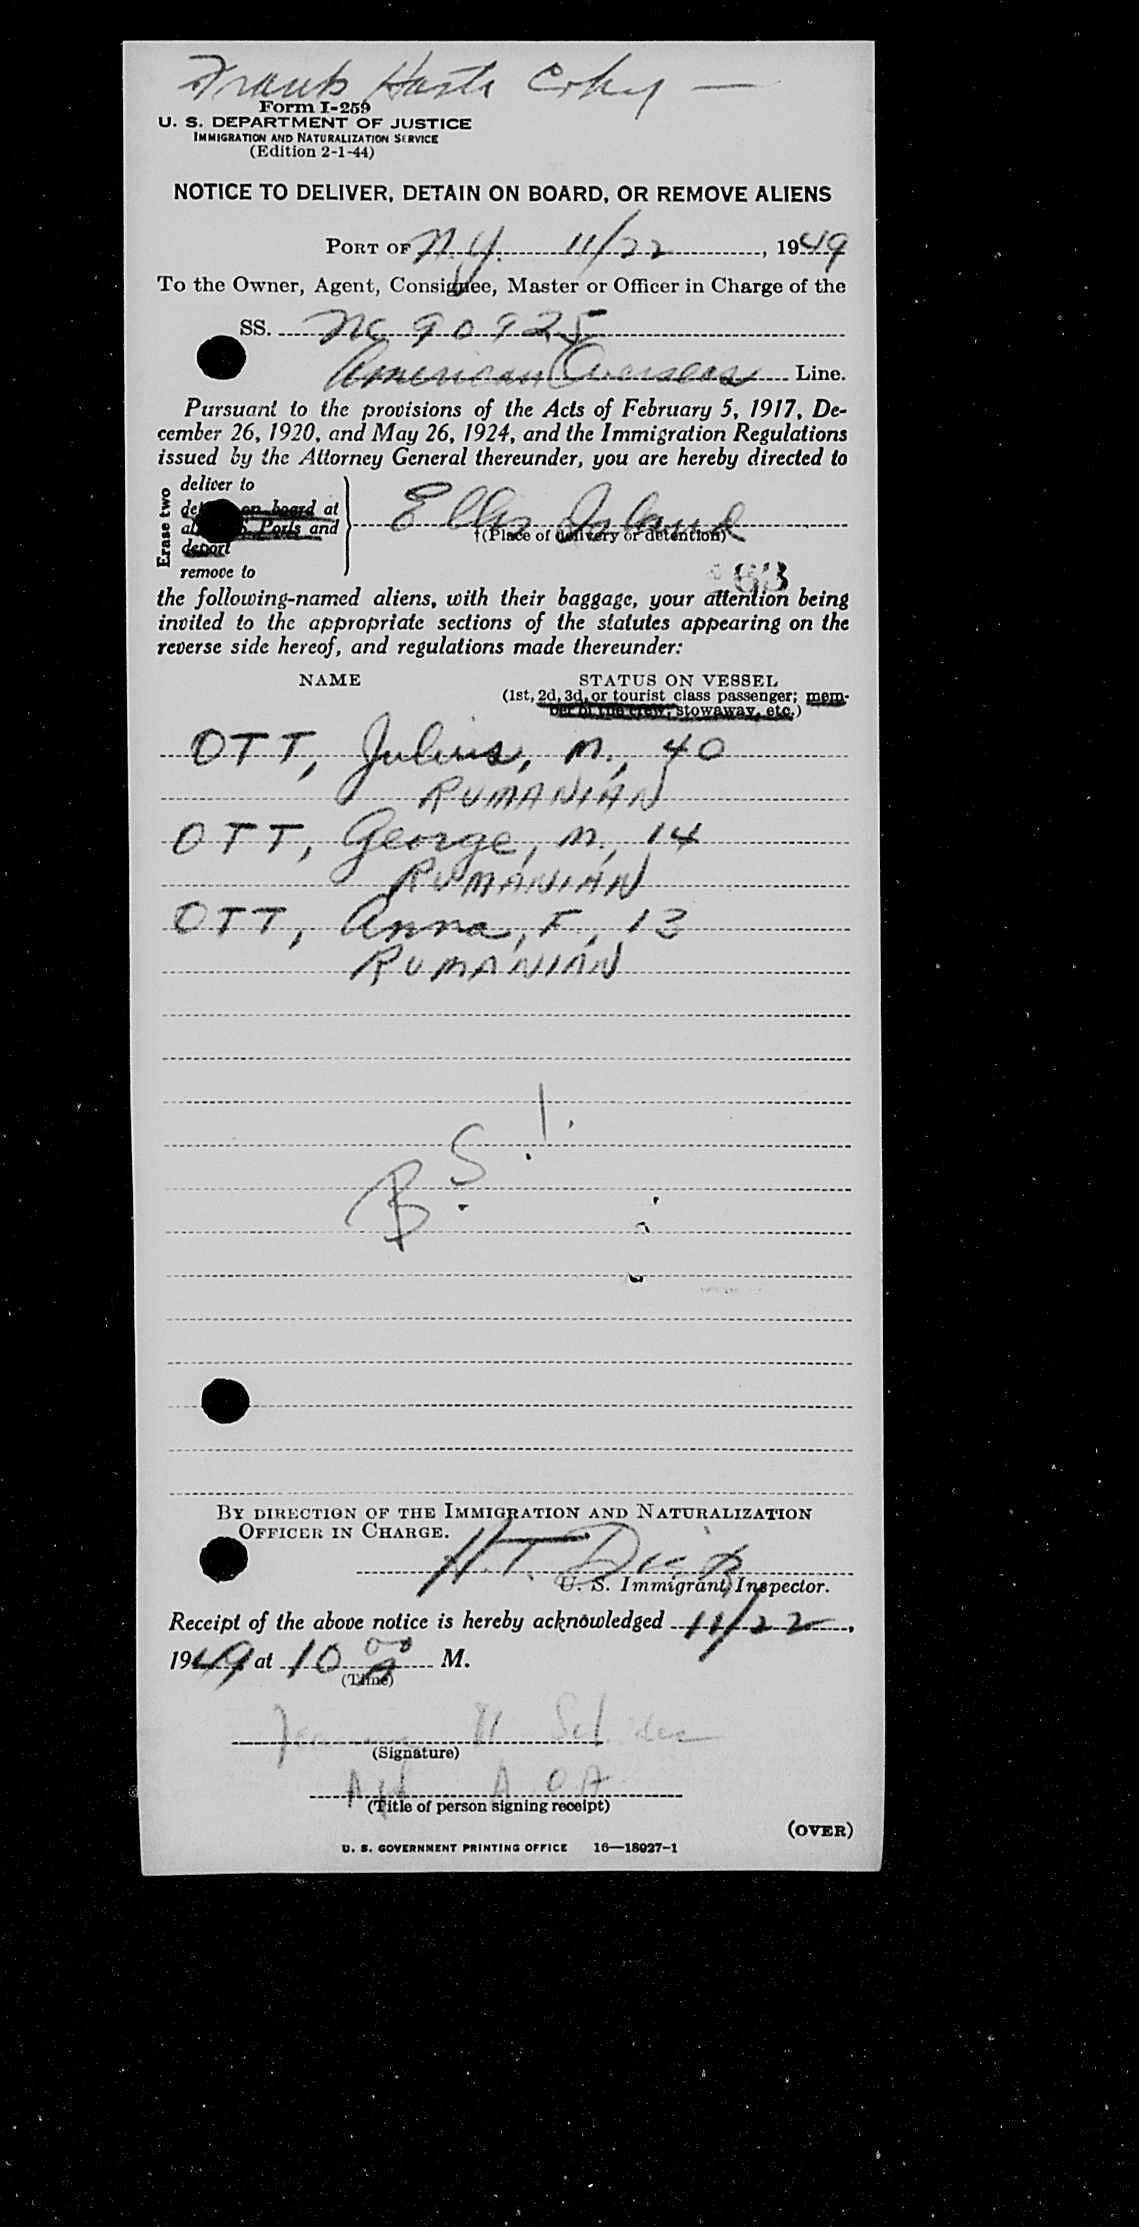 Frank
Form I-259
U. S. DEPARTMENT OF JUSTICE
IMMIGRATION AND NATURALIZATION SERVICE
(Edition 2-1-44)
NOTICE TO DELIVER, DETAIN ON BOARD, OR REMOVE ALIENS
PORT OF N.Y. 11/22, 1949
To the Owner, Agent, Consignee, Master or Officer in Charge of the
SS. NC 90925
American Overseas Line.
Pursuant to the provisions of the Acts of February 5, 1917, De-
cember 26, 1920, and May 26, 1924, and the Immigration Regulations
issued by the Attorney General thereunder, you are hereby directed to
Erase two
deliver to
on board at
Ports and
deport
remove to
Ellis Island
†(Place of delivery or detention)
63
the following-named aliens, with their baggage, your attention being
invited to the appropriate sections of the statutes appearing on the
reverse side hereof, and regulations made thereunder:
NAME STATUS ON VESSEL
(1st, 2d, 3d, or tourist class passenger; mem-
ber of the crew; stowaway, etc.)
OTT, Julius, M., 40
RUMANIAN
OTT, George, M., 14
RUMANIAN
OTT, Anna, F., 13
RUMANIAN
B.S.I.
BY DIRECTION OF THE IMMIGRATION AND NATURALIZATION
OFFICER IN CHARGE.
H.T.
U. S. Immigrant Inspector.
Receipt of the above notice is hereby acknowledged 11/22,
1949 at 10 00 A M.
(Time)
(Signature)
A O A
(Title of person signing receipt)
(OVER)
U. S. GOVERNMENT PRINTING OFFICE 16—18027-1